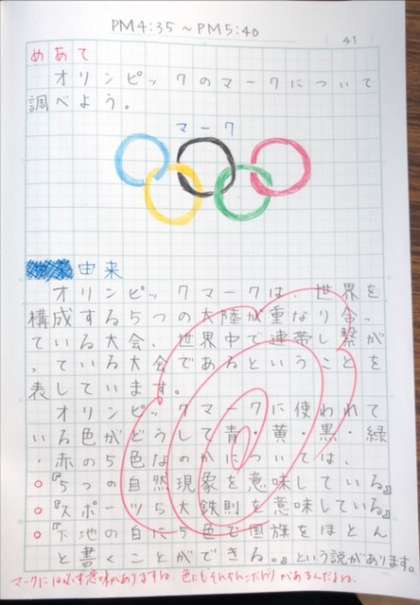 PM4:35 ~ PM5:40
41
めあて
オリンピックのマークについて
調べよう。
マーク
由来
オリンピックマークは、世界を
構成する5つの大陸が重なり合っ
ている大会、世界中で連帯し繋が
っている大会であるということを
表しています。
オリンピックマークに使われて
いる色がどうして青・黄・黒・緑
・赤の5色なのかについては、
○『5つの自然現象を意味している。』
○『スポーツ5大鉄則を意味している。』
○『下地の白に5色で国旗をほとん
ど書くことができる。』という説があります。
マークには必ず意味がありますね。色にもそれぞれこだわりがあるんだよね。